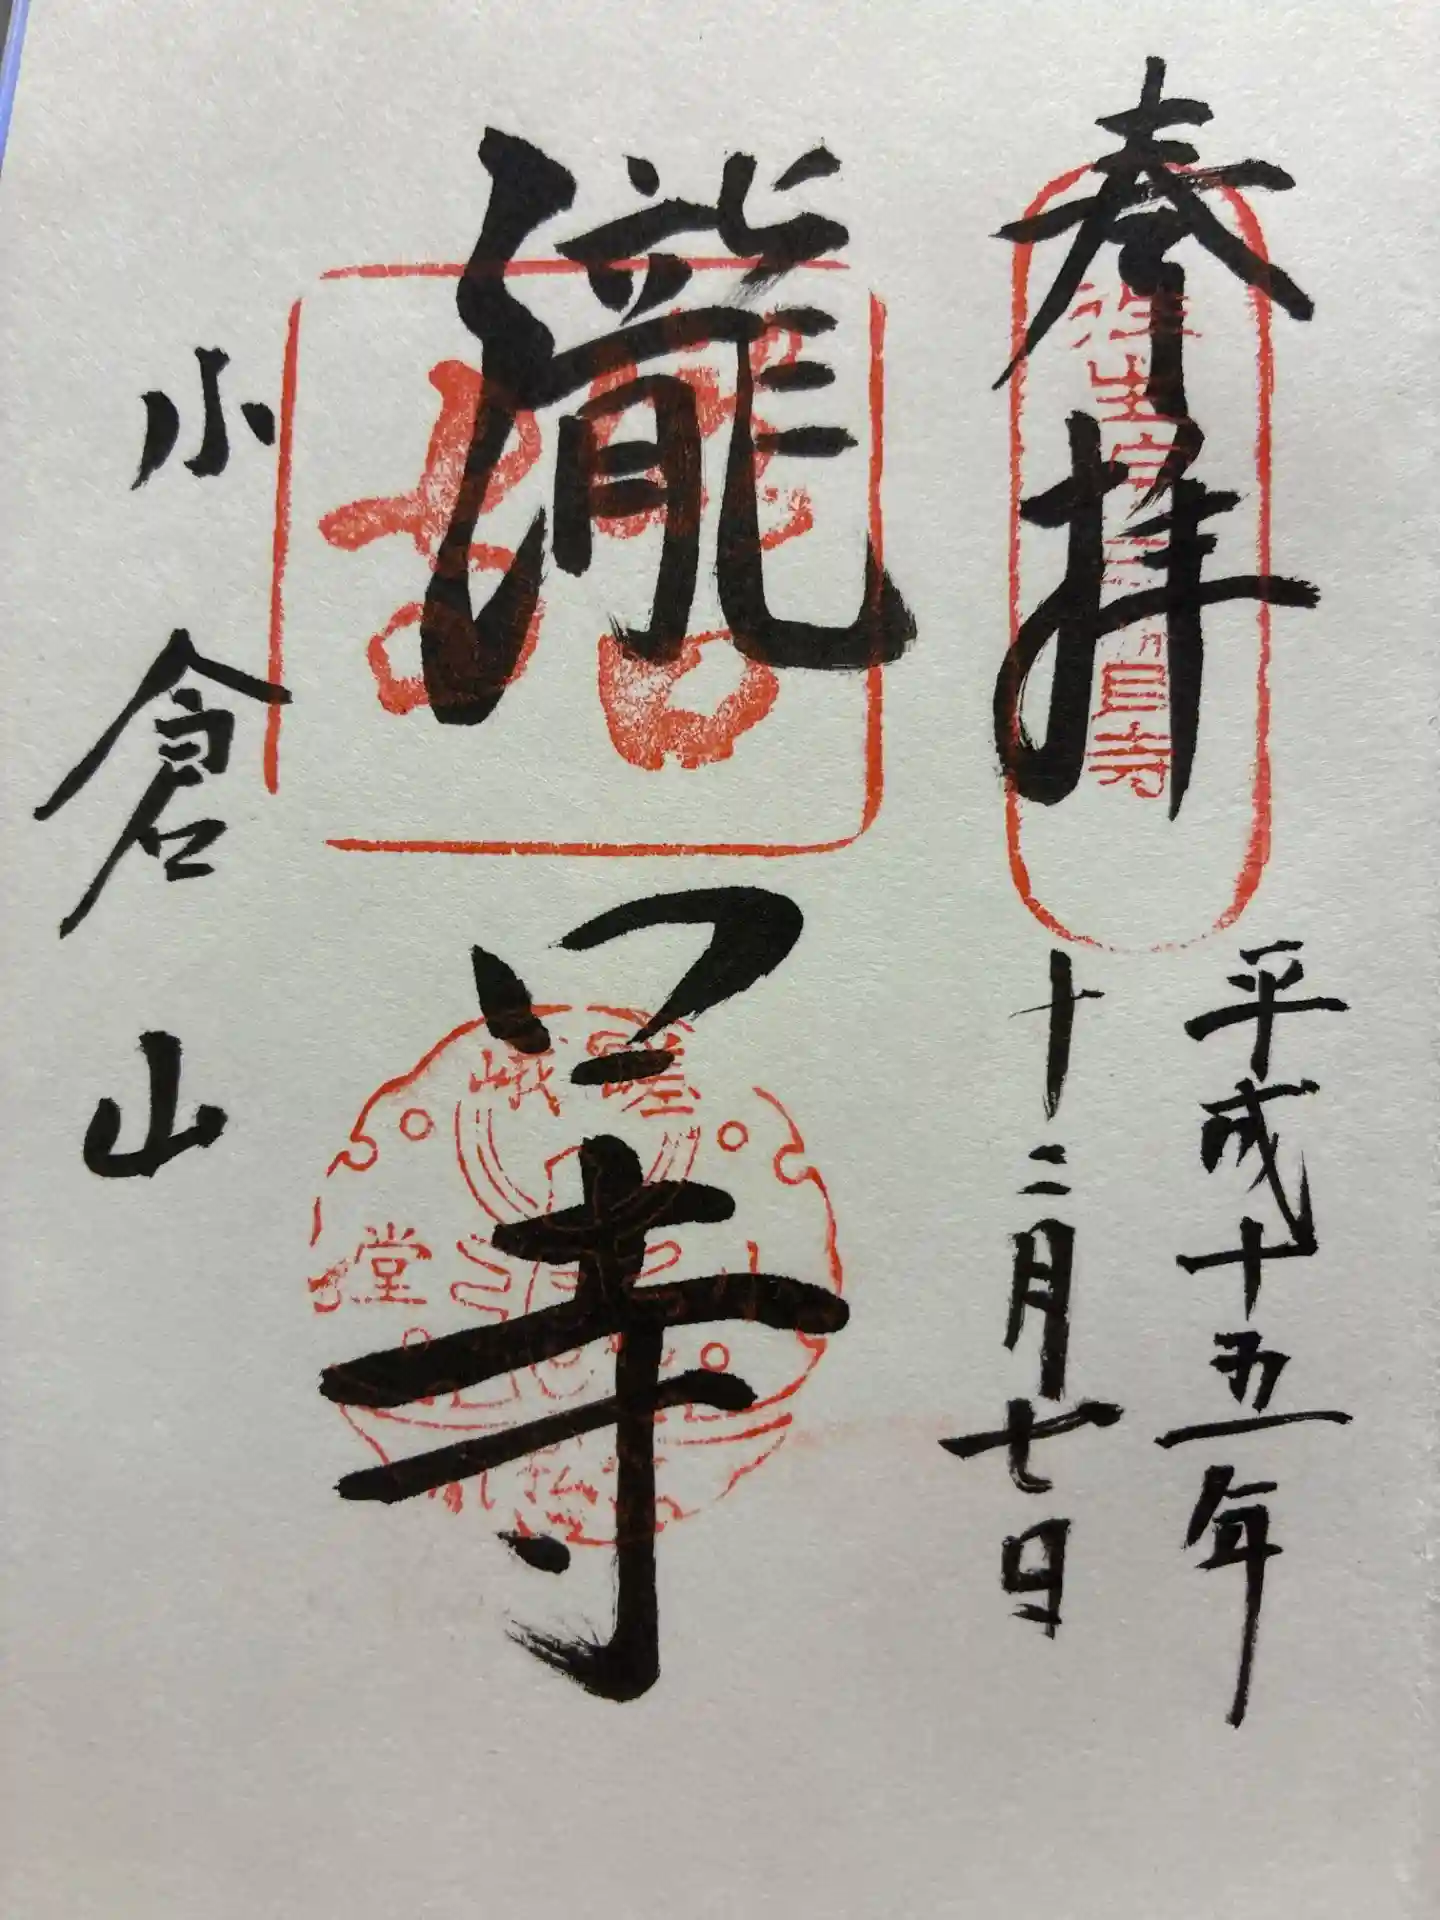 奉拝
平成十五年
十二月七日
瀧口寺
小倉山
嵯峨
堂
小